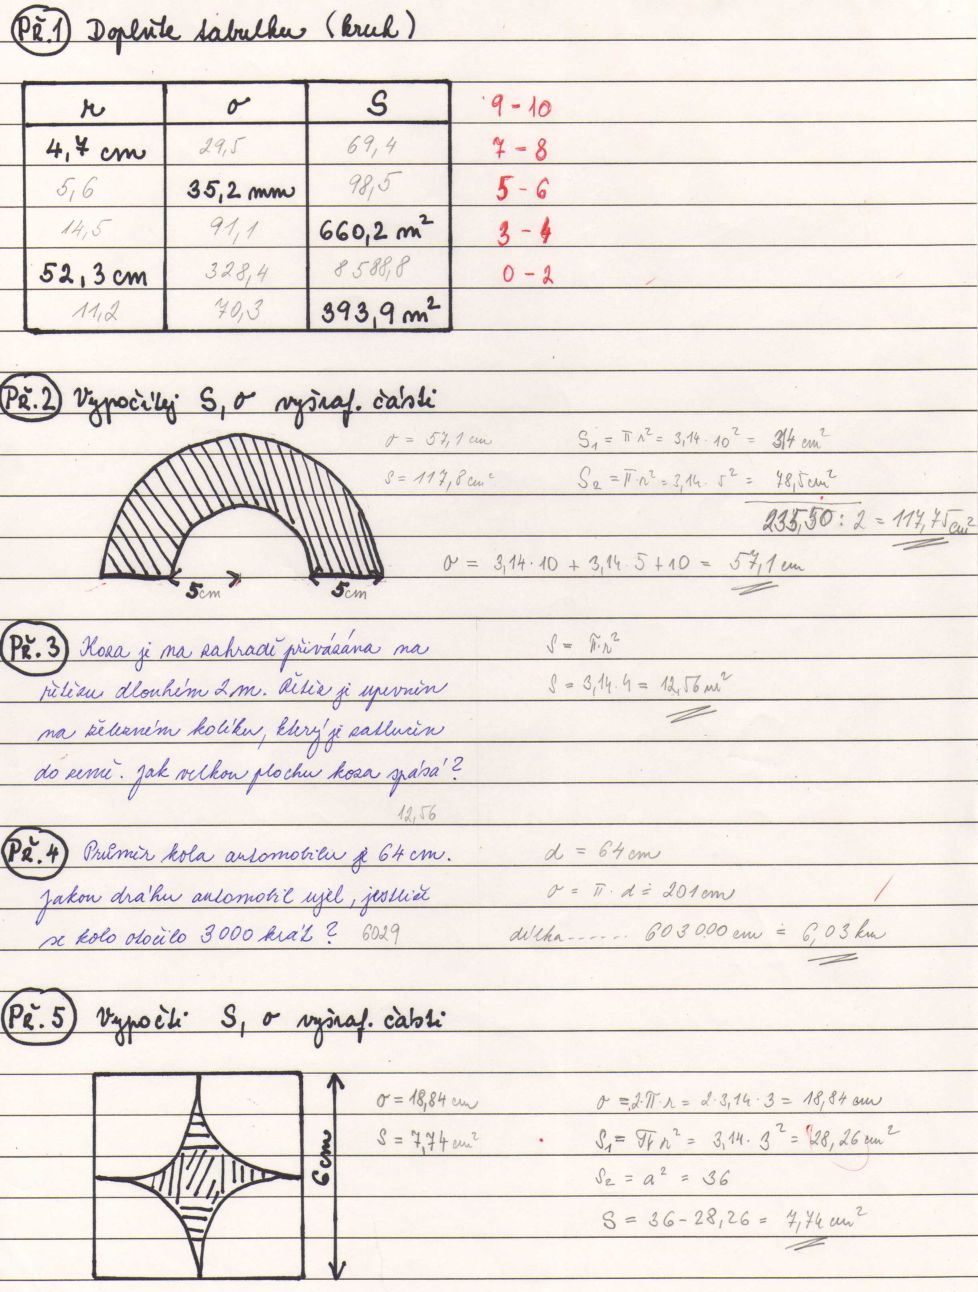 Př.1 Doplňte tabulku (kruh)
r o S
4,7 cm 29,5 69,4
5,6 35,2 mm 98,5
14,5 91,1 660,2 m²
52,3 cm 328,4 8588,8
11,2 70,3 393,9 m²
9 - 10
7 - 8
5 - 6
3 - 4
0 - 2
Př.2 Vypočítej S, o vyšraf. části
o = 57,1 cm
S = 117,8 cm²
5 cm 5 cm
S₁ = π r² = 3,14 · 10² = 314 cm²
S₂ = π · r² = 3,14 · 5² = 78,5 cm²
235,50 : 2 = 117,75 cm²
o = 3,14 · 10 + 3,14 · 5 + 10 = 57,1 cm
Př.3 Koza je na zahradě přivázána na
řetězu dlouhém 2 m. Řetěz je upevněn
na železném kolíku, který je zatlučen
do země. Jak velkou plochu koza spásá?
12,56
S = π · r²
S = 3,14 · 4 = 12,56 m²
Př.4 Průměr kola automobilu je 64 cm.
Jakou dráhu automobil ujel, jestliže
se kolo otočilo 3000 krát? 6029
d = 64 cm
o = π · d ≐ 201 cm
délka ...... 603000 cm ≐ 6,03 km
Př.5 Vypočti S, o vyšraf. části
6 cm
o = 18,84 cm
S = 7,74 cm²
o = 2 · π · r = 2 · 3,14 · 3 = 18,84 cm
S₁ = π r² = 3,14 · 3² = 28,26 cm²
S₂ = a² = 36
S = 36 - 28,26 = 7,74 cm²